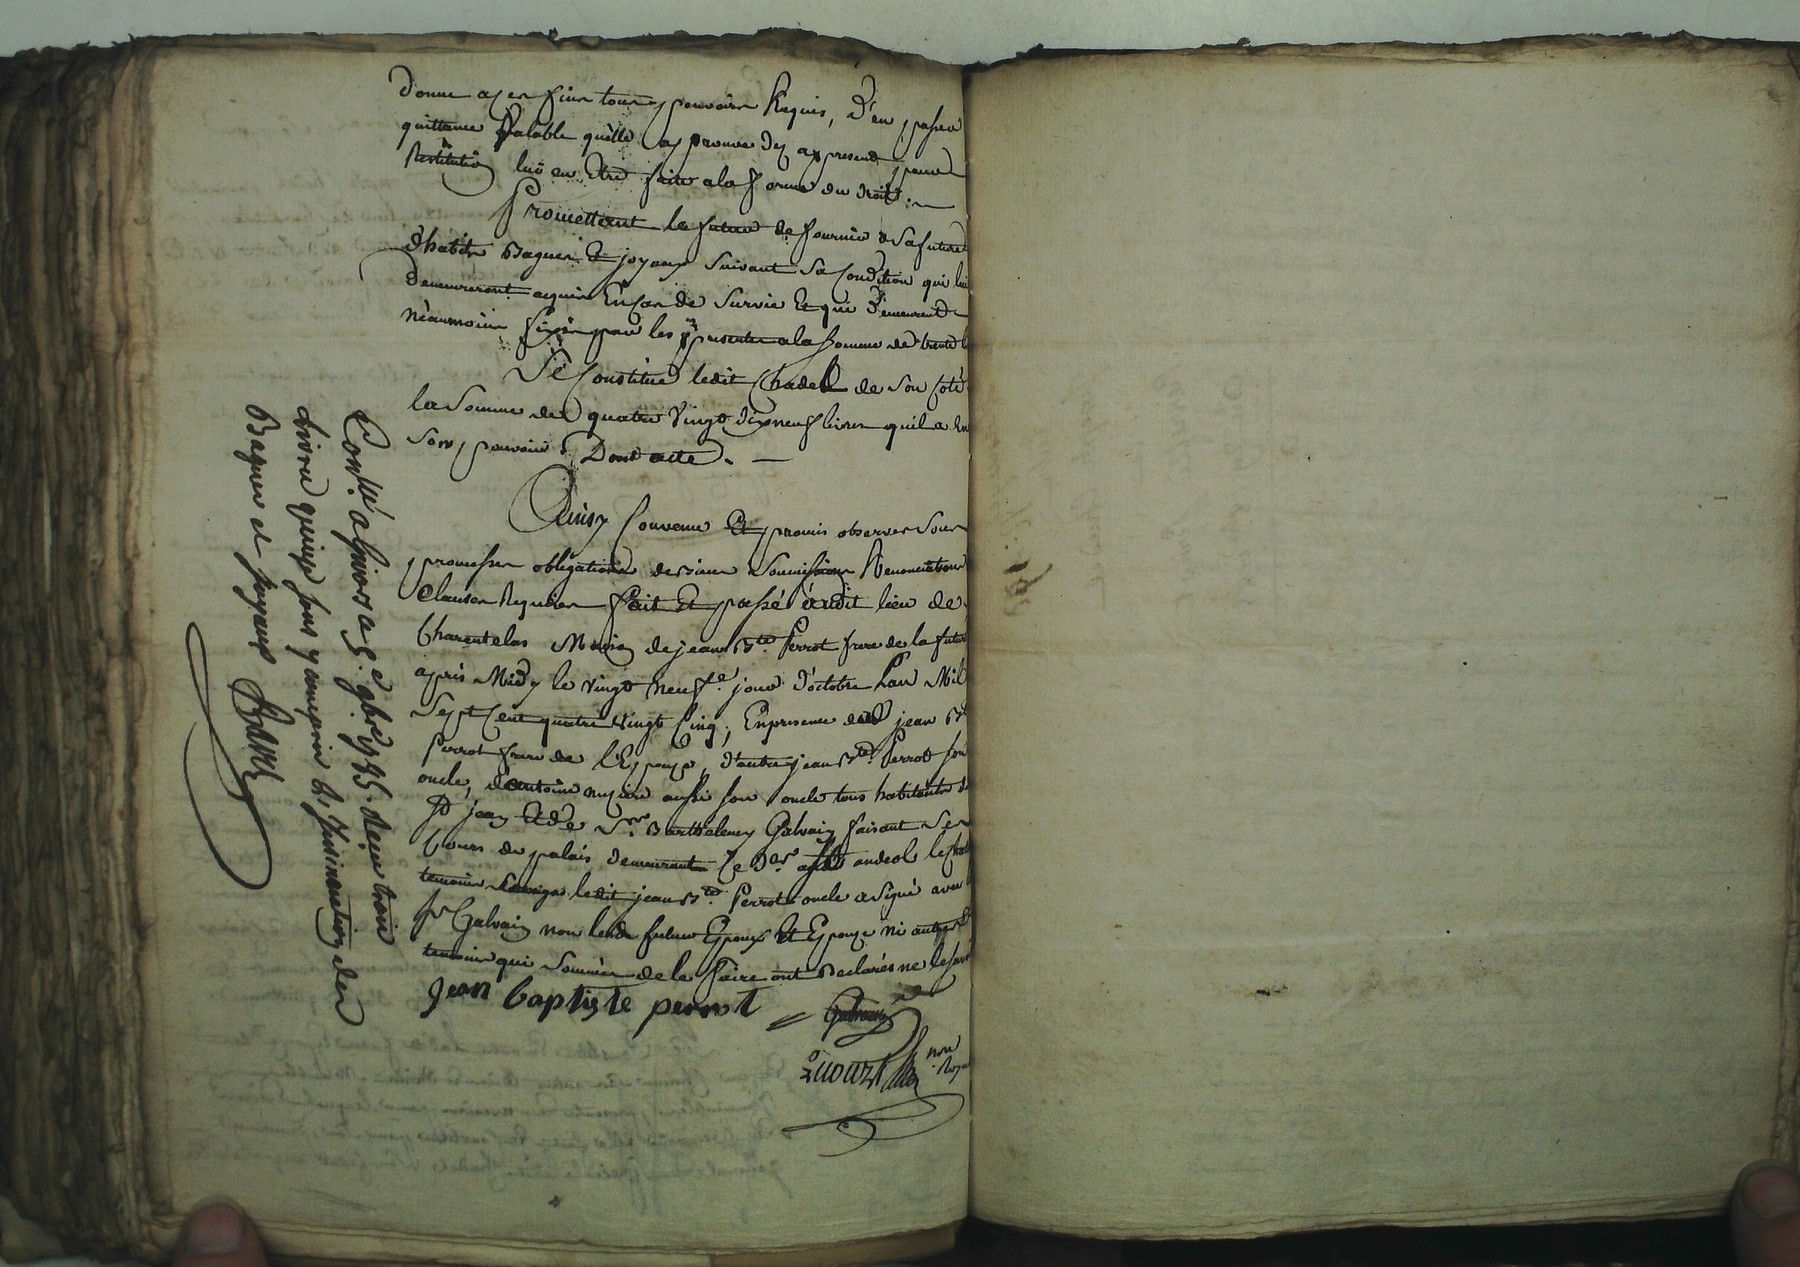 donne a ces fins tous pouvoirs Requis, D'en passer
quittance Valable qu'elle approuve dez apresent pour
Restitution luy en Etre faite a la forme du droit. —
Promettant le futur de fournir a Sa future
d'habits Bagues Et joyaux Suivant Sa Condition qui lui
Demeureront acquis En Cas de Survie Et qui Demeurent
néanmoins fixés par les presentes a la Somme de trente
Se Constitue ledit Chadel de Son Coté
la Somme de quatre Vingt dixneuf livres quil a En
Son pouvoir Dont acte. —
Ainsy Convenu Et promis observer Sous
promesses obligations de Soumissions Renonciations
Clauses Requises fait Et passé audit lieu de
Charentelas Maison de jean Bte. Perrot frere de la future
après Midy le vingt neufe. jour d'octobre L'an Mil
Sept Cent quatre Vingt Cinq, En presence dudt jean Bte
Perrot frere de l'Epouze, d'autre jean Bte. Perrot Son
oncle, d'antoine aussi Son oncle tous habitants de
St jean Et de Sr. Barthelemy Galvain faisant Ses
Cours de palais demeurant Ce Der. andeol le
temoins ledit jean Bte. Perrot oncle a Signé avec
Sr Galvain non lesds futurs Epoux Et Epouze ni autres
temoins qui Sommés de le faire ont Declarés ne le Savoir
jean baptiste perrot
Galvain
not
Roy
Conlle. a Givors a 5e 9bre 1785. Reçu trois
Livres quinze Sous y compris l'Insinuation des
Bagues et Joyaux